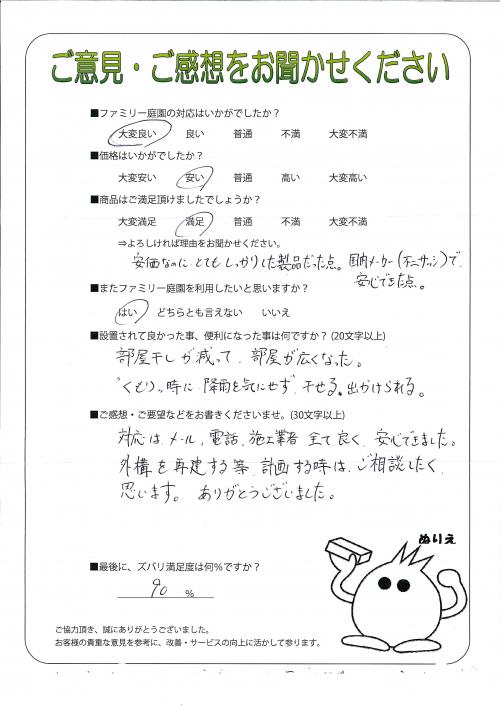 ご意見・ご感想をお聞かせください
■ファミリー庭園の対応はいかがでしたか？
大変良い 良い 普通 不満 大変不満
■価格はいかがでしたか？
大変安い 安い 普通 高い 大変高い
■商品はご満足頂けましたでしょうか？
大変満足 満足 普通 不満 大変不満
⇒よろしければ理由をお聞かせください。
安価なのに とても しっかりした製品だった点。国内メーカー(不二サッシ)で、
安心できた点。
■またファミリー庭園を利用したいと思いますか？
はい どちらとも言えない いいえ
■設置されて良かった事、便利になった事は何ですか？(20文字以上)
部屋干しが減って、部屋が広くなった。
"くもり"時に 降雨を気にせず、干せる。出かけられる。
■ご感想・ご要望などをお書きくださいませ。(30文字以上)
対応は メール、電話、施工業者 全て良く、安心できました。
外構を再建する等、計画する時は、ご相談したく、
思います。 ありがとうございました。
ぬりえ
■最後に、ズバリ満足度は何％ですか？
90 ％
ご協力頂き、誠にありがとうございました。
お客様の貴重な意見を参考に、改善・サービスの向上に活かして参ります。